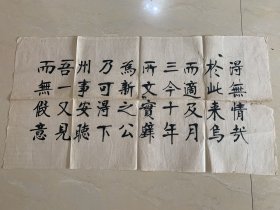 得無情哉
於此来烏
而適及月
三今十年
所文寶葬
為新之公
乃可得下
州事安聴
吾一又見
而無假意